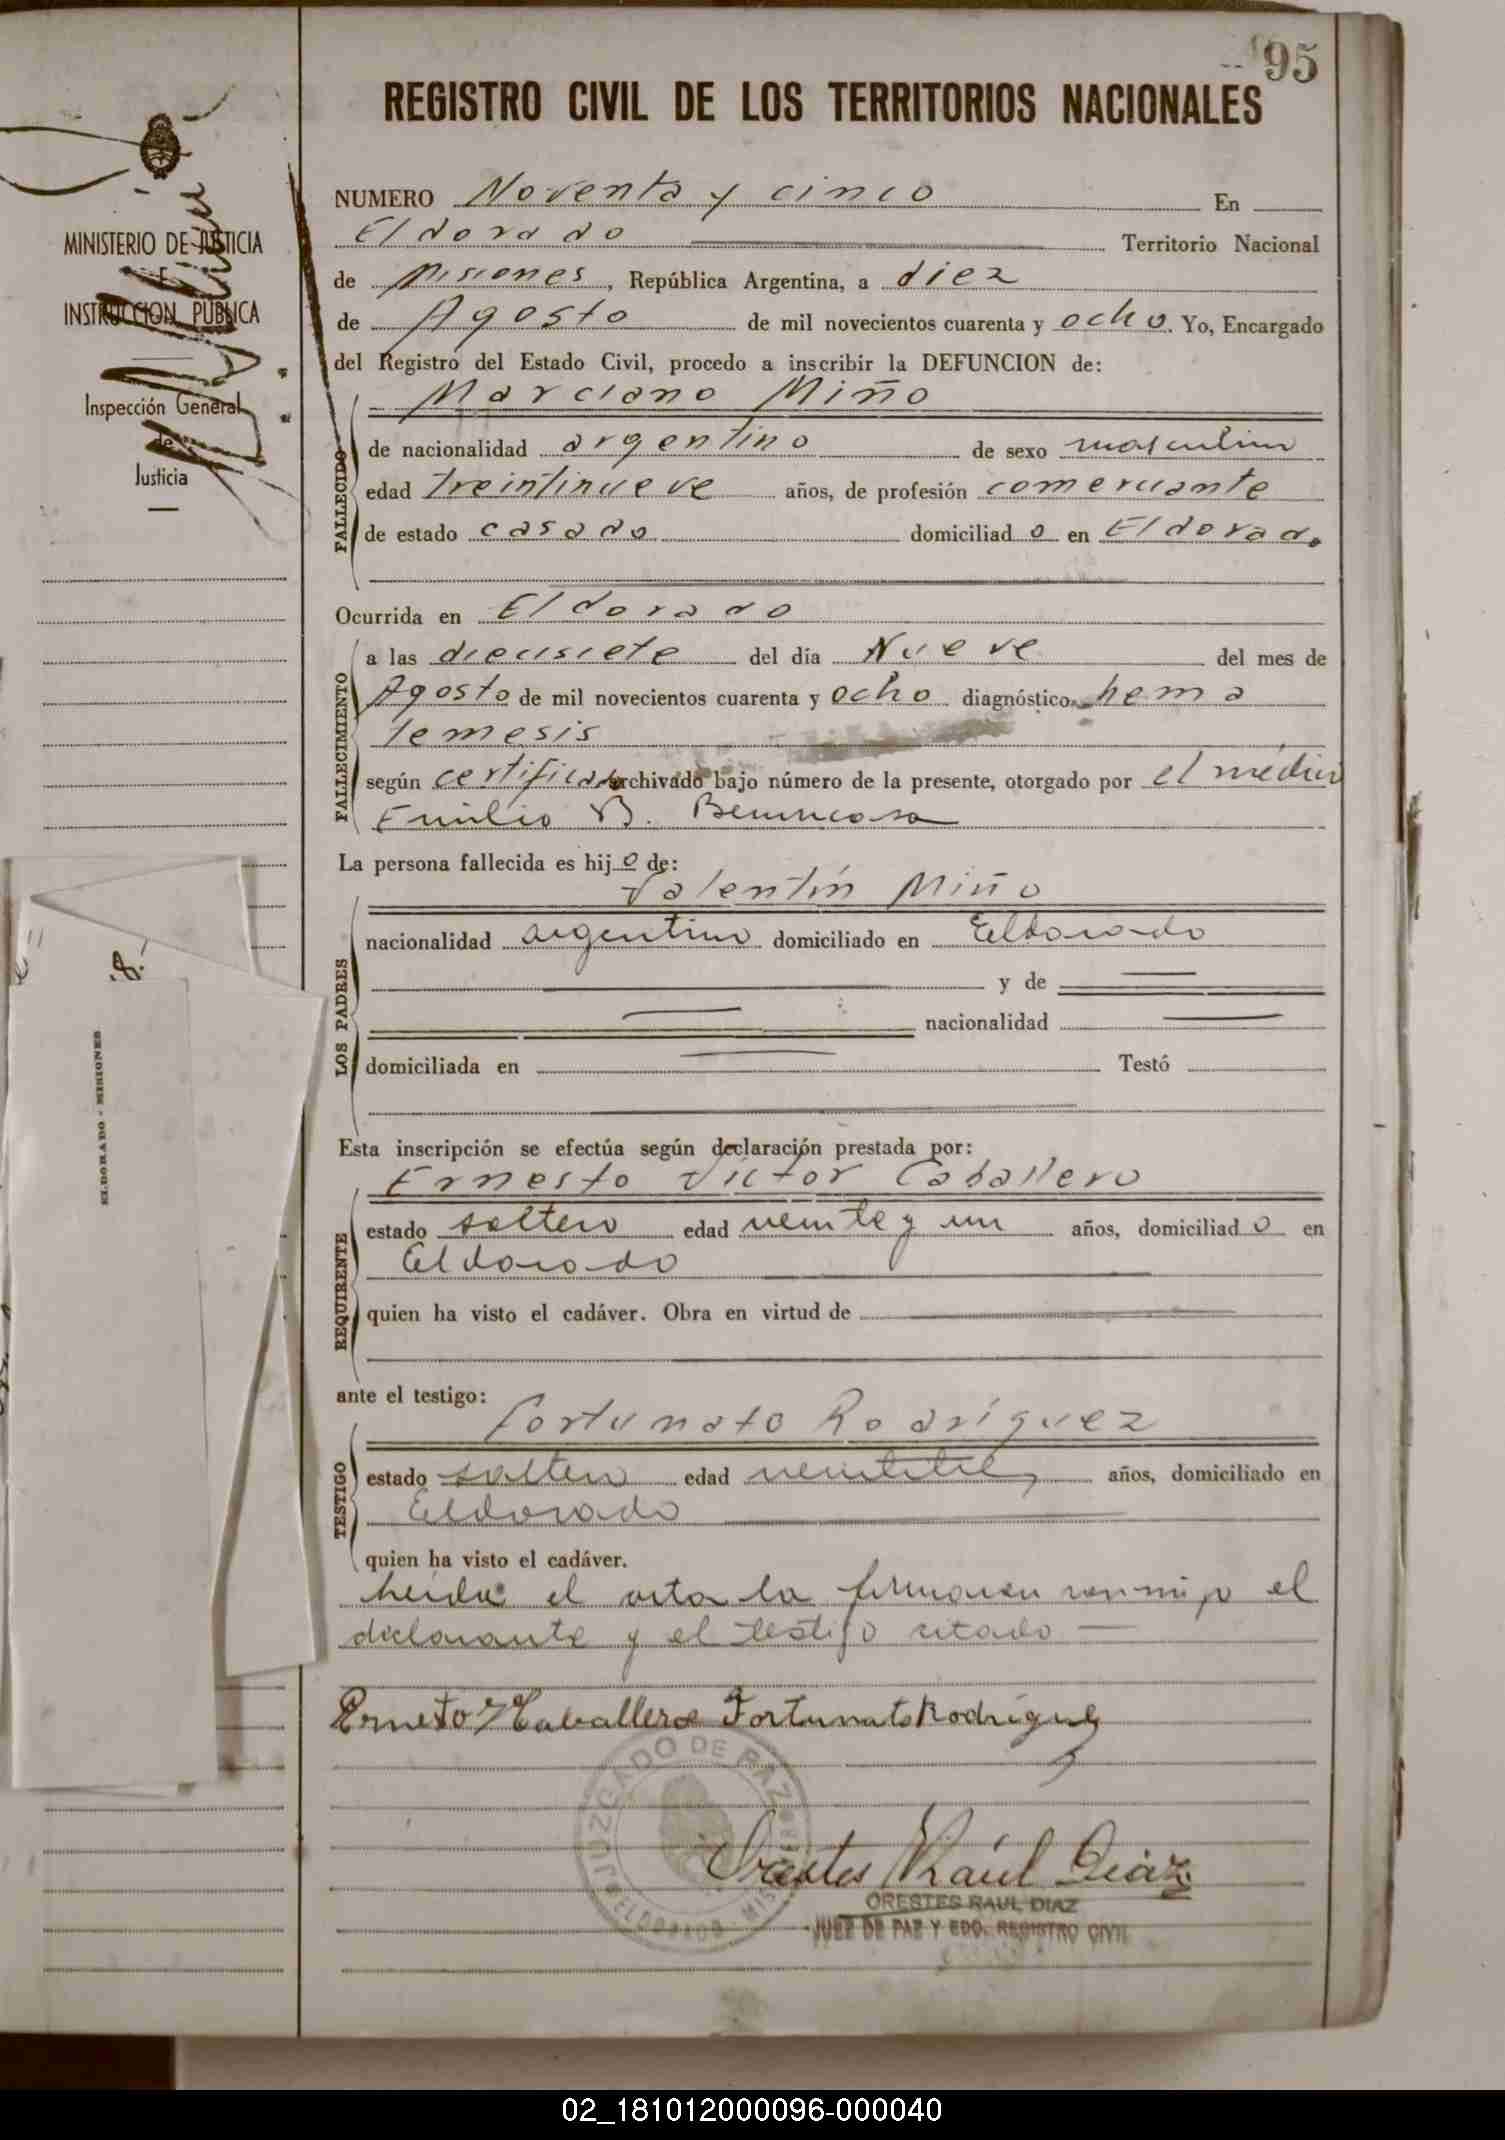 95
REGISTRO CIVIL DE LOS TERRITORIOS NACIONALES
MINISTERIO DE JUSTICIA
E
INSTRUCCION PUBLICA
Inspección General
de
Justicia
NUMERO Noventa y cinco En
Eldorado Territorio Nacional
de Misiones, República Argentina, a diez
de Agosto de mil novecientos cuarenta y ocho. Yo, Encargado
del Registro del Estado Civil, procedo a inscribir la DEFUNCION de:
Marciano Miño
FALLECIDO
de nacionalidad argentino de sexo masculino
edad treintinueve años, de profesión comerciante
de estado casado domiciliado en Eldorado
Ocurrida en Eldorado
FALLECIMIENTO
a las diecisiete del día Nueve del mes de
Agosto de mil novecientos cuarenta y ocho diagnóstico hema
temesis
según certificado archivado bajo número de la presente, otorgado por el médico
Emilio B.
La persona fallecida es hijo de:
Valentín Miño
LOS PADRES
nacionalidad argentino domiciliado en Eldorado
y de
nacionalidad
domiciliada en Testó
Esta inscripción se efectúa según declaración prestada por:
Ernesto Victor Caballero
REQUIRENTE
estado soltero edad veinte y un años, domiciliado en
Eldorado
quien ha visto el cadáver. Obra en virtud de
ante el testigo:
Fortunato Rodríguez
TESTIGO
estado soltero edad años, domiciliado en
Eldorado
quien ha visto el cadáver.
Leída el acta la firmaron conmigo el
declarante y el testigo citado
Ernesto V Caballero Fortunato Rodríguez
JUZGADO DE PAZ
ELDORADO
Orestes Raúl Diaz
ORESTES RAUL DIAZ
JUEZ DE PAZ Y EDO. REGISTRO CIVIL
ELDORADO - MISIONES
02_181012000096-000040